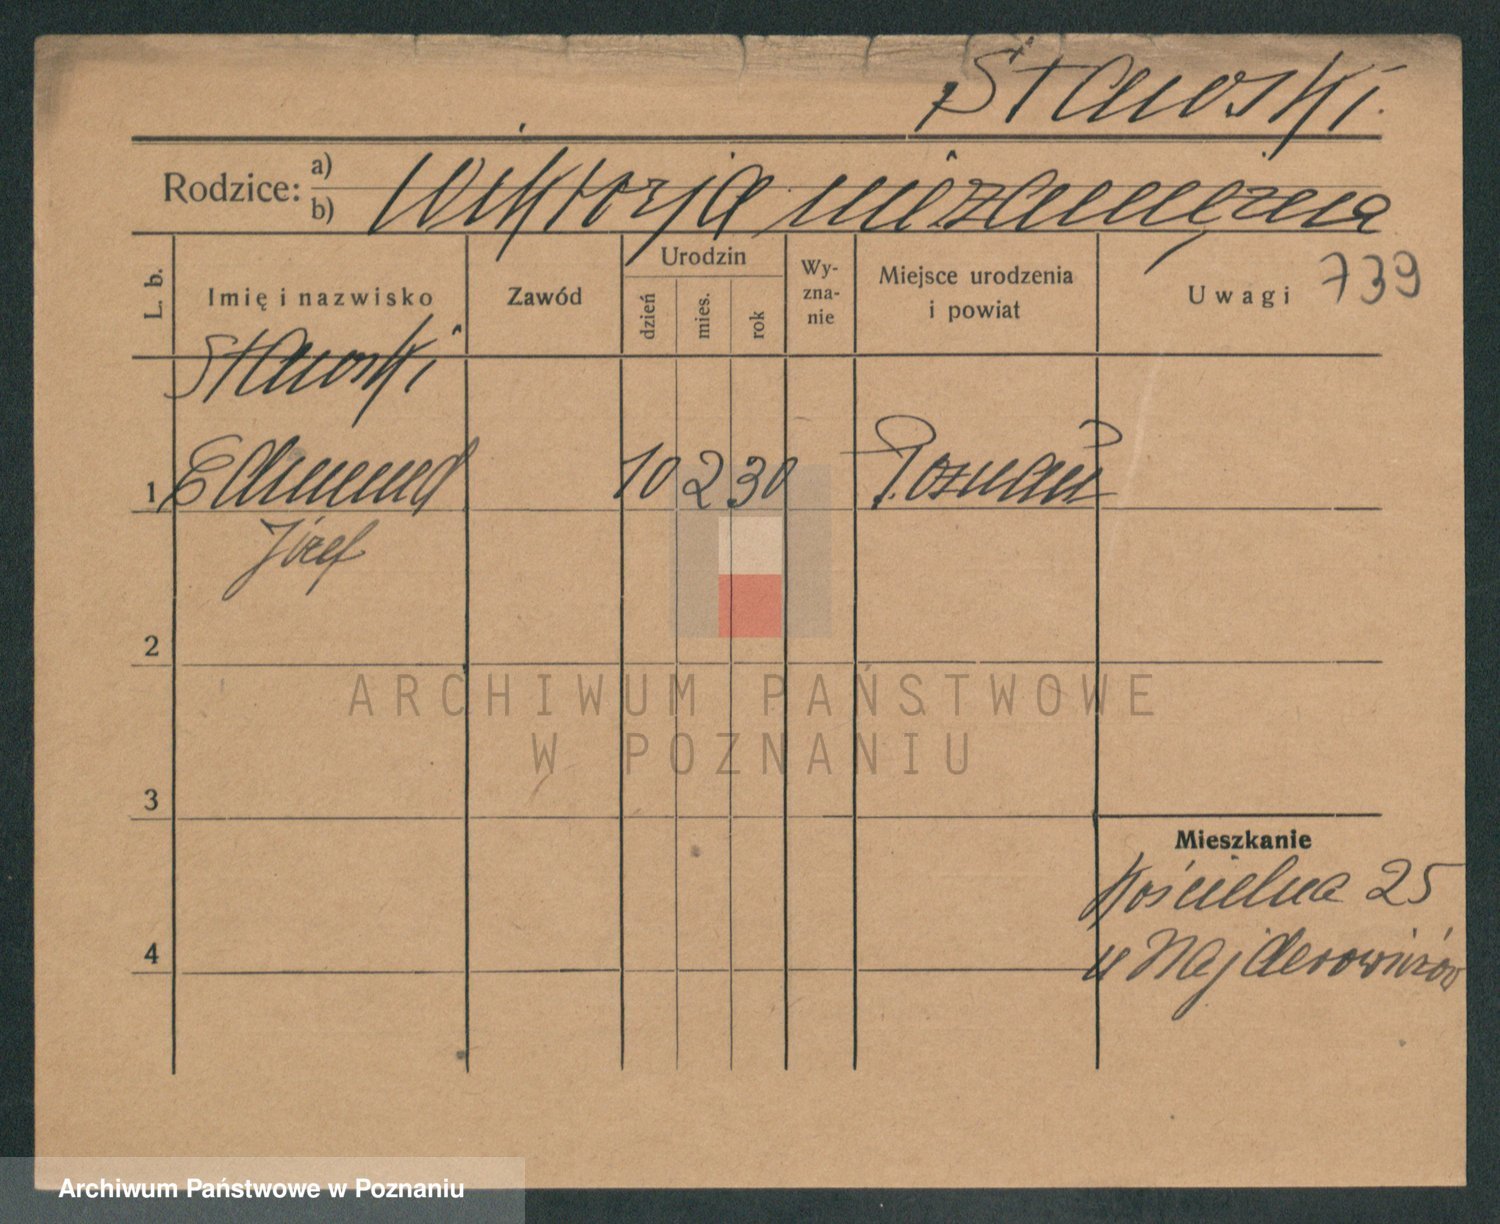 Stawski
Rodzice: a)
b)
Wiktorja niezamężna
L. b.
Imię i nazwisko
Zawód
Urodzin
dzień
mies.
rok
Wy-
zna-
nie
Miejsce urodzenia
i powiat
Uwagi 739
Stawski
1 Edmund 10 2 30 Poznań
Józef
2
ARCHIWUM PAŃSTWOWE
W POZNANIU
3
Mieszkanie
Kościelna 25
4
u Najderowiczów
Archiwum Państwowe w Poznaniu